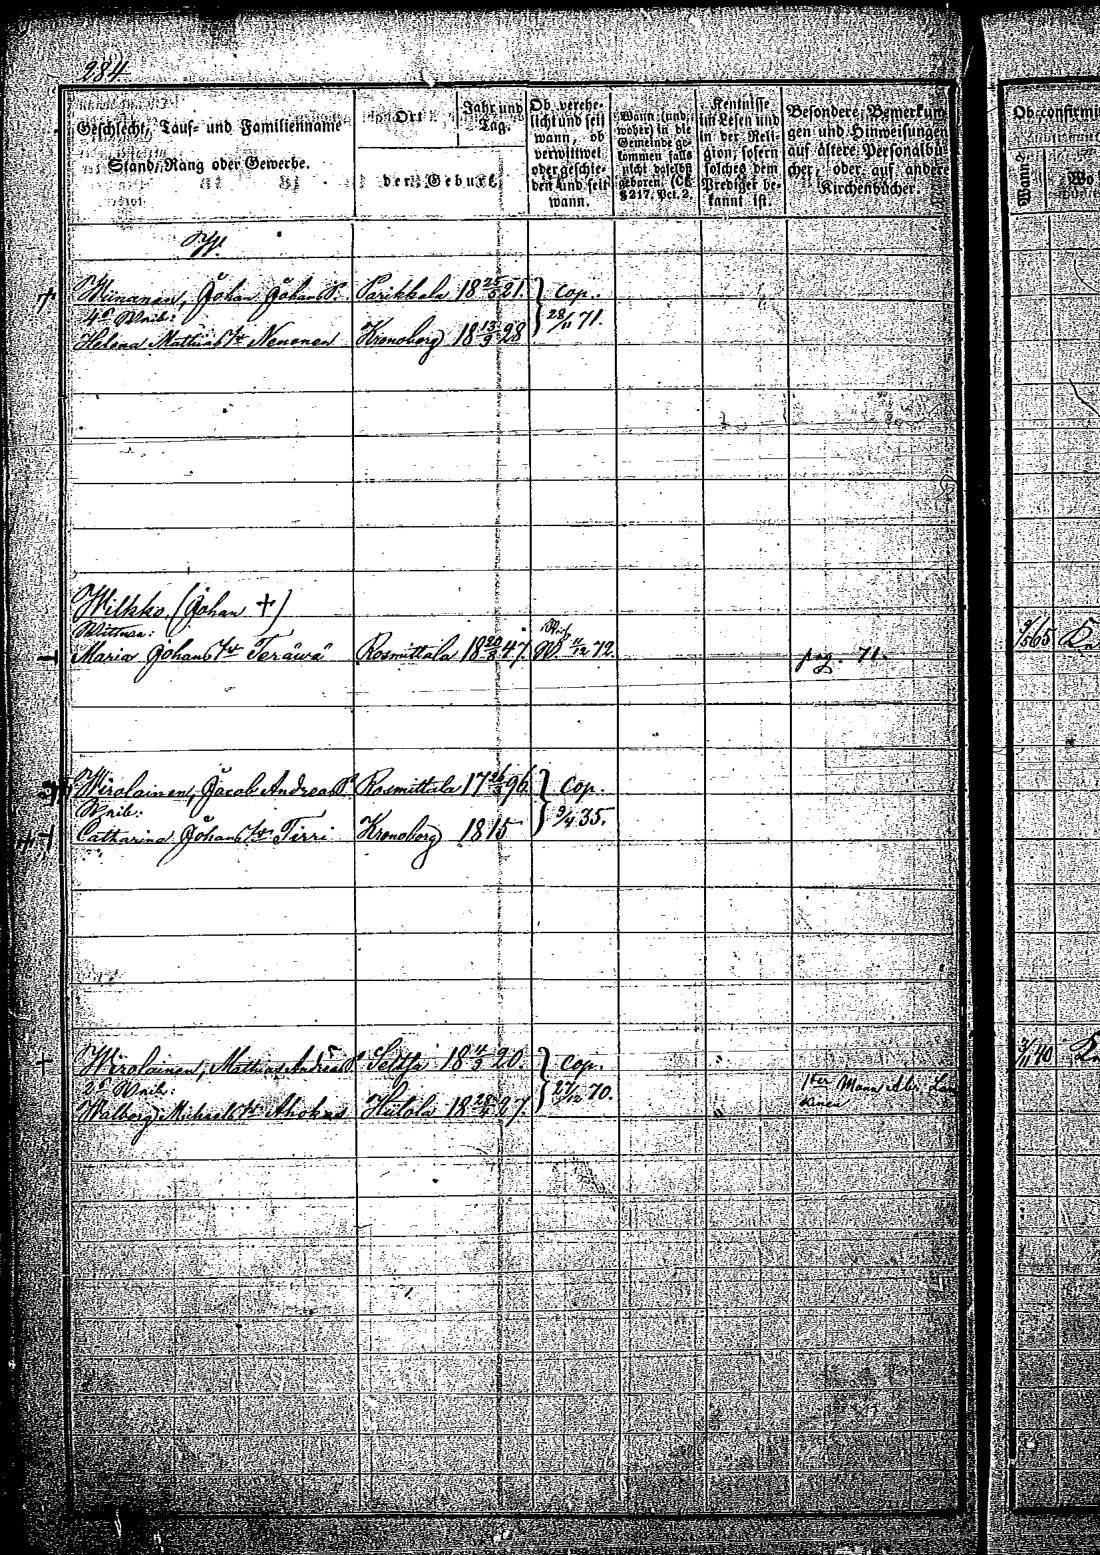 284
Geschlecht, Tauf- und Familienname
Stand, Rang oder Gewerbe.
Ort
Jahr und Tag.
der Geburt.
Ob verehe-
licht und seit
wann, ob
verwittwet
oder geschie-
den und seit
wann.
Wann (und
woher) in die
Gemeinde ge-
kommen falls
nicht daselbst
geboren. (
§ 217. Pct. 2.
Kentnisse
im Lesen und
in der Reli-
gion, sofern
solches dem
Prediger be-
kannt ist.
Besondere Bemerkun-
gen und Hinweisungen
auf ältere Personalbü-
cher, oder auf andere
Kirchenbücher.
Ob confirmi
Wann?
Wo
W.
Winanen, Johan Johans S. Parikkala 18 21. Cop.
4s Weib: 28/11 71.
Helena Mathias Tr Nenonen Kronoborg 18 13/9 28
Wilkko (Johan +)
Wittwe:
Maria Johans Tr Teräwä Rosmittala 18 47. W. 72. pag. 71. 65
Wirolainen, Jacob Andreas S. Rasmittala 17 96. Cop.
Weib: 35.
Catharina Johans Tr Tirri Kronoborg 1815
Wirolainen, Mathias Andreas S. 18 20. Cop. 40
2s Weib: 27/12 70. 1ster Mann
Walborg Michaels Tr Ahokas Hiitola 18 27.